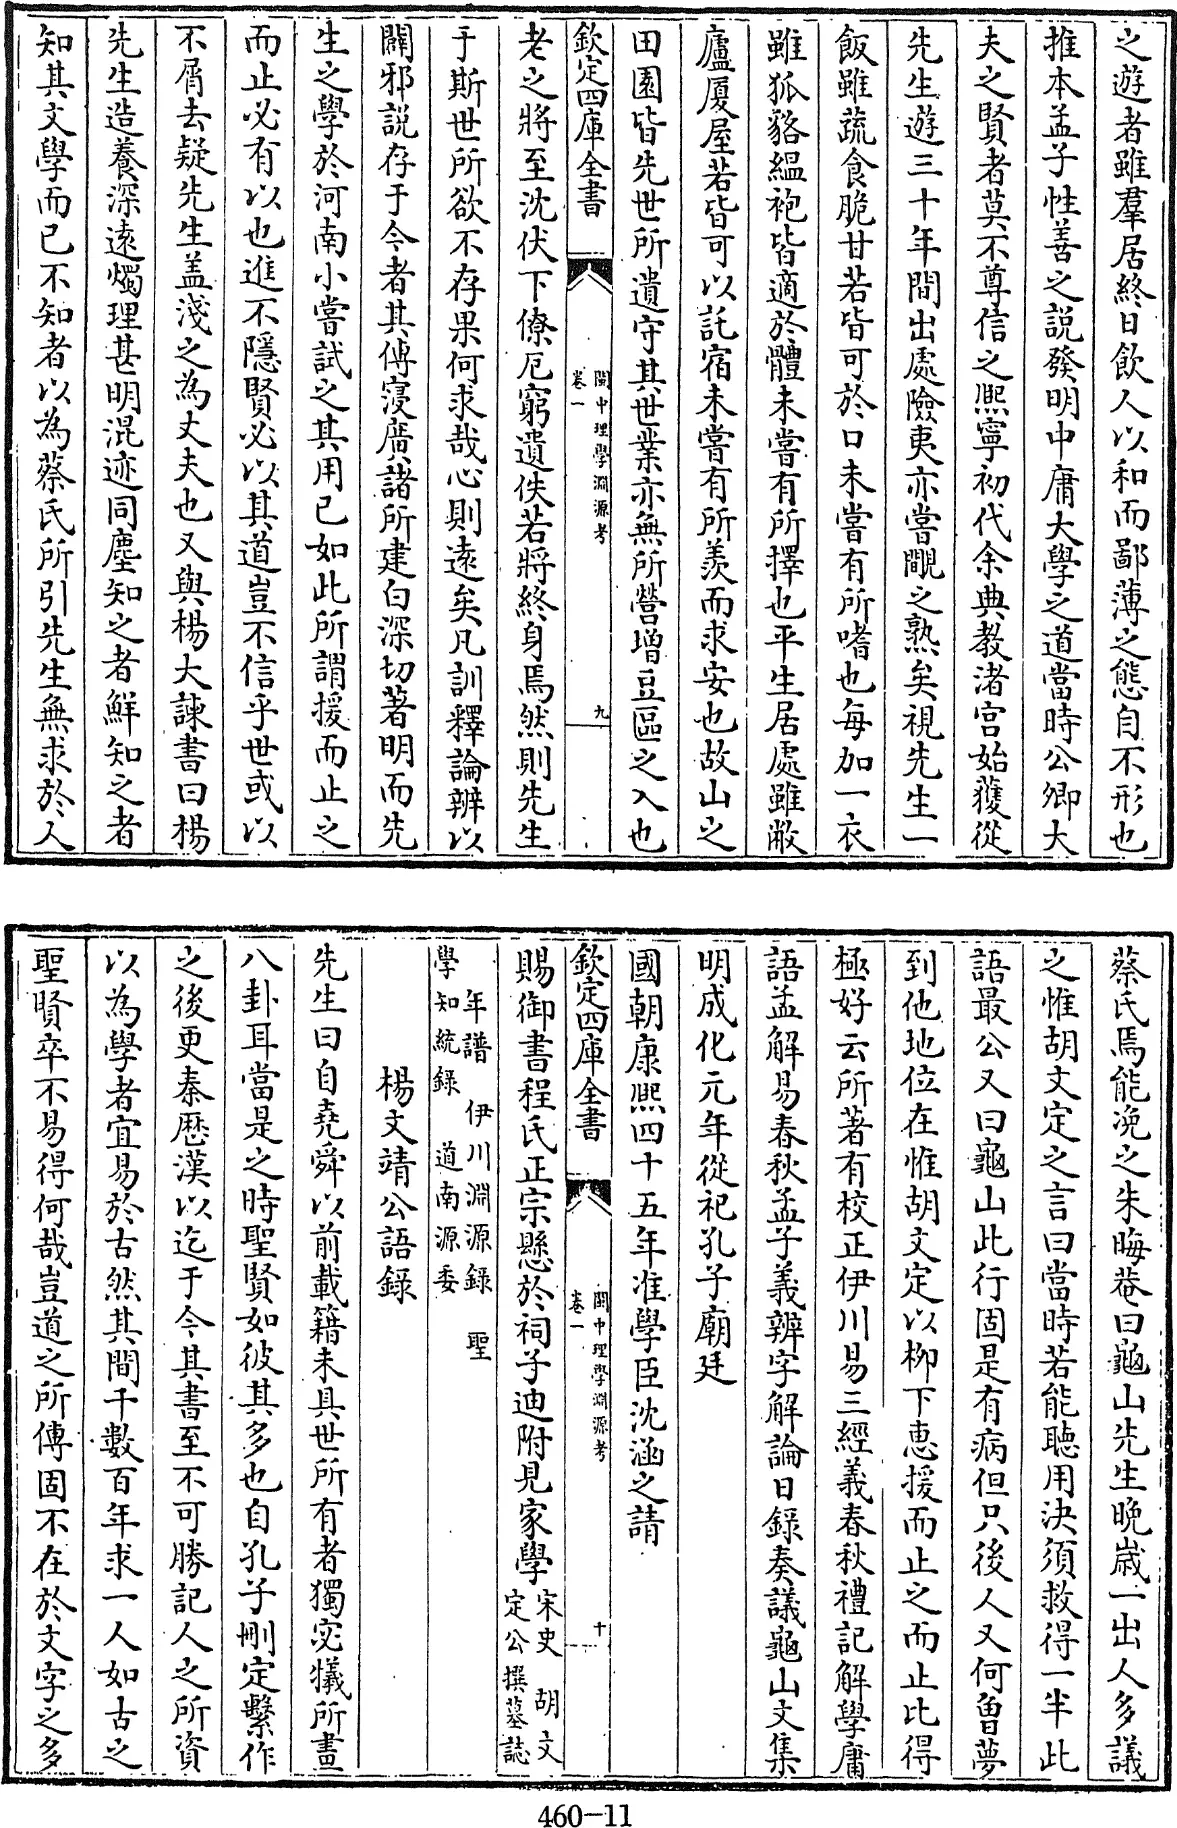 之遊者雖羣居終日飲人以和而鄙薄之態自不形也
推本孟子性善之説發明中庸大學之道當時公卿大
夫之賢者莫不尊信之熈寧初代余典教渚宫始獲從
先生遊三十年間出處險夷亦嘗覸之熟矣視先生一
飯雖蔬食脆甘若皆可於口未嘗有所嗜也每加一衣
雖狐貉緼袍皆適於體未嘗有所擇也平生居處雖敝
廬厦屋若皆可以託宿未嘗有所羨而求安也故山之
田園皆先世所遺守其世業亦無所營增豆區之入也
欽定四庫全書
閩中理學淵源考
卷一
九
老之將至沈伏下僚厄窮遺佚若將終身焉然則先生
于斯世所欲不存果何求哉心則逺矣凡訓釋論辨以
闢邪説存于今者其傳寖廣諸所建白深切著明而先
生之學於河南小嘗試之其用已如此所謂援而止之
而止必有以也進不隱賢必以其道豈不信乎世或以
不屑去疑先生盖淺之為丈夫也又與楊大諫書曰楊
先生造養深逺燭理甚明混迹同塵知之者鮮知之者
知其文學而已不知者以為蔡氏所引先生無求於人
蔡氏焉能凂之朱晦菴曰龜山先生晚歳一出人多議
之惟胡文定之言曰當時若能聽用決須救得一半此
語最公又曰龜山此行固是有病但只後人又何曽夢
到他地位在惟胡文定以栁下惠援而止之而止比得
極好云所著有校正伊川易三經義春秋禮記解學庸
語孟解易春秋孟子義辨字解論日錄奏議龜山文集
明成化元年從祀孔子廟廷
國朝康熈四十五年准學臣沈涵之請
欽定四庫全書
閩中理學淵源考
卷一
十
賜御書程氏正宗懸於祠子迪附見家學宋史 胡文
定公撰墓誌
年譜 伊川淵源録 聖
學知統録 道南源委
楊文靖公語録
先生曰自堯舜以前載籍未具世所有者獨宓犠所畫
八卦耳當是之時聖賢如彼其多也自孔子刪定繫作
之後更秦歴漢以迄于今其書至不可勝記人之所資
以為學者宜易於古然其間千數百年求一人如古之
聖賢卒不易得何哉豈道之所傳固不在於文字之多
460-11